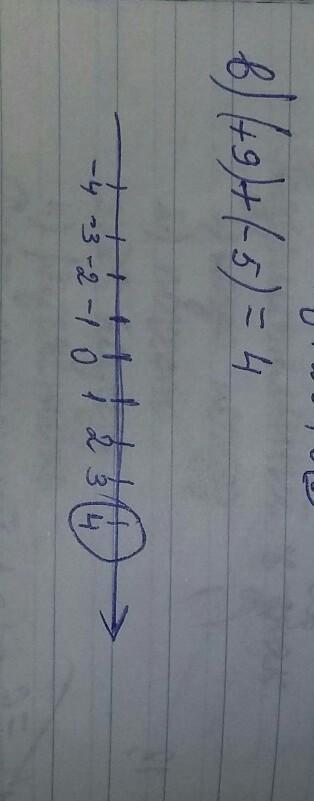 в) (+9)+(-5) = 4
-4 -3 -2 -1 0 1 2 3 4